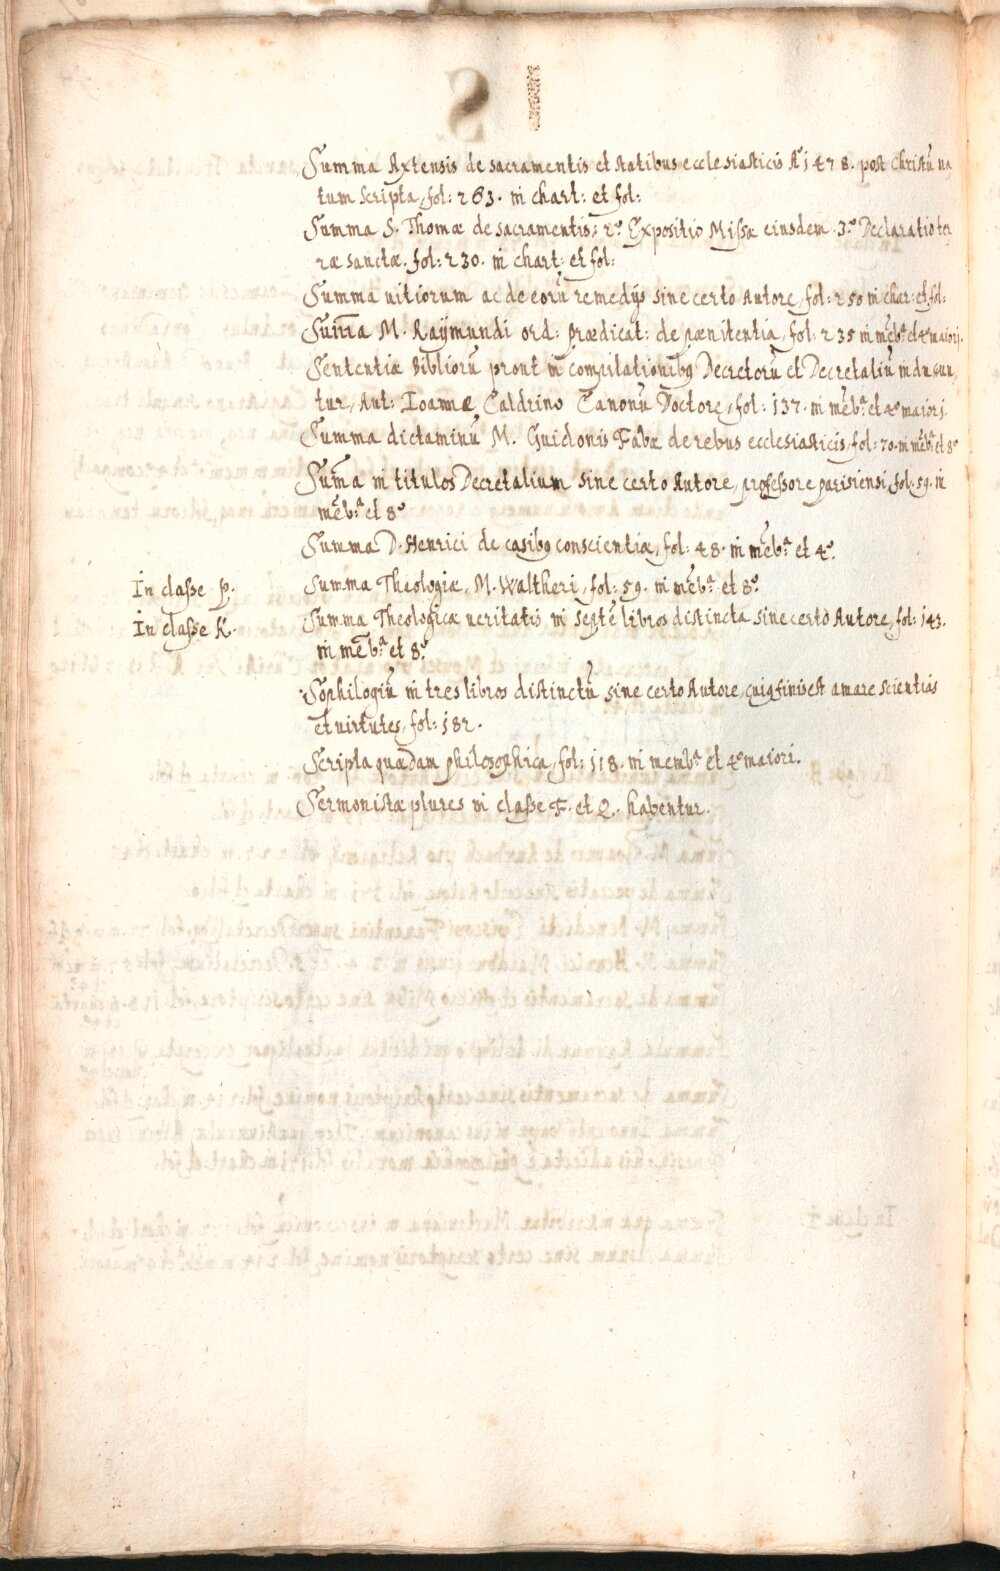 Summa Axtensis de sacramentis et statibus ecclesiasticis Aº 1478. post Christū na
tum scripta, fol: 263. in chart: et fol:
Summa S. Thomæ de sacramentis: 2º Expositio Missæ eiusdem. 3º Declaratio ter
ræ sanctæ. fol: 230. in chart: et fol:
Summa uitiorum ac de eorū remedijs sine certo Autore, fol: 250 in char: et fol:
Sum̄a M. Raÿmundi ord: prædicat: de pænitentia, fol: 235 in mēbª et 4º maiori.
Sententiæ Bibliorū prout in compilationibꝯ Decretorū et Decretaliū inducun,
tur, Aut: Ioanne Caldrino Canonū Doctore, fol: 137. in mēbª et 4º maiori.
Summa dictaminū M. Guidonis Fabæ de rebus ecclesiasticis, fol: 70. in mēbª et 8º
Sum̄a in titulos Decretalium sine certo Autore, professore parisiensi, fol: 59. in
mēbª et 8º
Summa D. Henrici de casibꝯ conscientiæ, fol: 48. in mēbª et 4º.
In classe P. Summa Theologiæ, M. Waltheri, fol: 59. in mēbª et 8º
In classe K. Summa Theologicæ ueritatis in septē libros distincta sine certo Autore, fol: 143.
in mēbª et 8º
Sophilogiū in tres libros distinctū sine certo Autore, cuiꝯ finis est amare scientias
et uirtutes, fol: 182.
Scripta quædam philosophica, fol: 118. in membª et 4º maiori.
Sermonistæ plures in classe F. et Q. habentur.